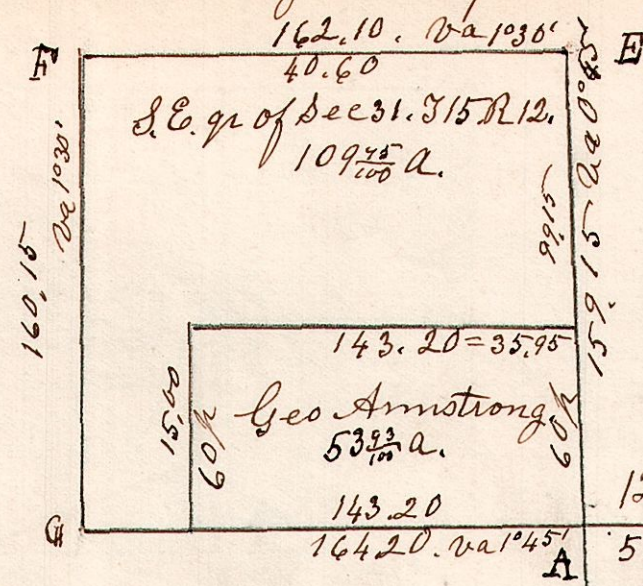 162.10. va 1°30'
F
E
40.60
S.E. qr of Sec 31. T15 R12.
109 45/100 A.
va 1°30'
160,15
99,15
159.15 va 0°45'
143.20 = 35,95
15,00
60 p
Geo Armstrong.
53 93/100 a.
60 p
143.20
G
164.20. va 1°45'
A
12
5